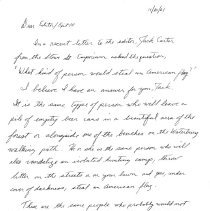 11/8/01
Dear Editor/Staff
In a recent letter to the editor, Jack Carter,
from the Stowe St. Emporium asked the question,
"What kind of person would steal an American flag?"
I believe I have an answer for you, Jack.
It is the same type of person who will leave a
pile of empty beer cans in a beautiful area of the
forest or alongside one of the benches on the Waterbury
walking path. He or she is the same person who will
also vandalize an isolated hunting camp, throw
litter on the streets or on your lawn and yes, under
cover of darkness, steal an American flag.
These are the same people who probably would not